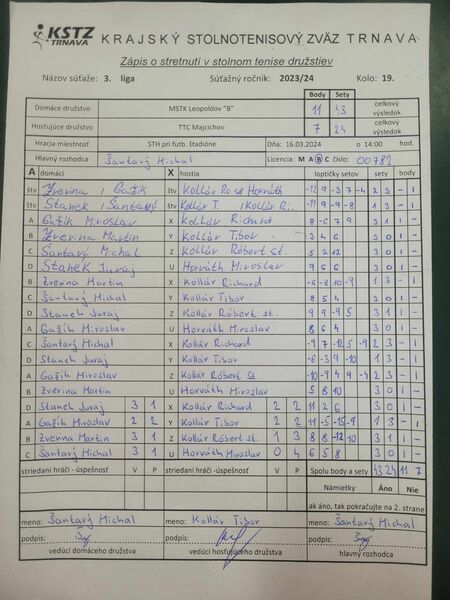 KSTZ
TRNAVA
KRAJSKÝ STOLNOTENISOVÝ ZVÄZ TRNAVA
Zápis o stretnutí v stolnom tenise družstiev
Názov súťaže: 3. liga Súťažný ročník: 2023/24 Kolo: 19.
Body Sety
Domáce družstvo MSTK Leopoldov "B" 11 43 celkový výsledok
Hosťujúce družstvo TTC Majcichov 7 24 celkový výsledok
Hracia miestnosť STH pri futb. štadióne Dňa: 16.03.2024 o 14:00 hod.
Hlavný rozhodca Šantavý Michal Licencia: M A B C číslo: 00782
A domáci X hostia loptičky setov sety body
štv Zverina / Gažík štv Kollár Ro st Horváth -12 9 -3 -7 -4 2 3 - 1
štv Stanek / Šantavý štv Kollár T. / Kollár R. -11 9 -9 -8 1 3 - 1
A Gažík Miroslav X Kollár Richard 3 1 1 -
B Zverina Martin Y Kollár Tibor 3 4 6 3 0 1 -
C Šantavý Michal Z Kollár Róbert st. 5 2 12 3 0 1 -
D Stanek Juraj U Horváth Miroslav 9 6 6 3 0 1 -
B Zverina Martin X Kollár Richard -5 -8 10 -9 1 3 - 1
C Šantavý Michal Y Kollár Tibor 8 5 4 3 0 1 -
D Stanek Juraj Z Kollár Róbert st. 9 9 -9 5 3 1 1 -
A Gažík Miroslav U Horváth Miroslav 8 6 4 3 0 1 -
C Šantavý Michal X Kollár Richard -1 7 -12 5 -9 2 3 - 1
D Stanek Juraj Y Kollár Tibor -6 -3 9 -10 1 3 - 1
A Gažík Miroslav Z Kollár Róbert st. -10 -9 4 9 -4 2 3 - 1
B Zverina Martin U Horváth Miroslav 5 8 10 3 0 1 -
D Stanek Juraj 3 1 X Kollár Richard 2 2 11 2 6 3 0 1 -
A Gažík Miroslav 2 2 Y Kollár Tibor 2 2 11 -5 -15 -9 1 3 - 1
B Zverina Martin 3 1 Z Kollár Róbert st. 1 3 8 8 -12 10 3 1 1 -
C Šantavý Michal 3 1 U Horváth Miroslav 0 4 6 5 8 3 0 1 -
striedaní hráči - úspešnosť V P striedaní hráči -úspešnosť V P Spolu body a sety 43 24 11 7
Námietky Áno Nie
ak áno, tak pokračujte na 2. strane
meno: Šantavý Michal meno: Kollár Tibor meno: Šantavý Michal
podpis: podpis: podpis:
vedúci domáceho družstva vedúci hosťujúceho družstva hlavný rozhodca